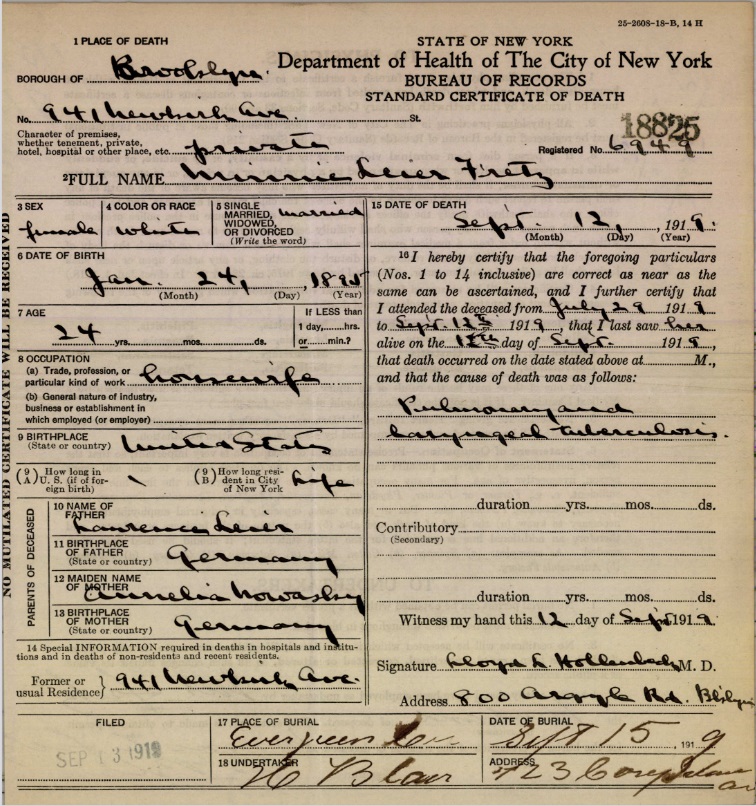 25-2608-18-B, 14 H
1 PLACE OF DEATH
STATE OF NEW YORK
Department of Health of The City of New York
BUREAU OF RECORDS
STANDARD CERTIFICATE OF DEATH
BOROUGH OF Brooklyn
No. 941 Newkirk Ave. St.
Character of premises,
whether tenement, private,
hotel, hospital or other place, etc. private
18825
Registered No. 6949
2 FULL NAME Minnie Leier Fretz
3 SEX female
4 COLOR OR RACE white
5 SINGLE
MARRIED, married
WIDOWED,
OR DIVORCED
(Write the word)
6 DATE OF BIRTH
Jan. 24, 1895
(Month) (Day) (Year)
7 AGE
24 yrs. mos. ds.
If LESS than
1 day, hrs.
or min.?
8 OCCUPATION
(a) Trade, profession, or
particular kind of work housewife
(b) General nature of industry,
business or establishment in
which employed (or employer)
9 BIRTHPLACE
(State or country) United States
(9 A) How long in
U. S. (if of for-
eign birth)
(9 B) How long resi-
dent in City
of New York Life
PARENTS OF DECEASED
10 NAME OF
FATHER
Laurence Leier
11 BIRTHPLACE
OF FATHER
(State or country) Germany
12 MAIDEN NAME
OF MOTHER
13 BIRTHPLACE
OF MOTHER
(State or country) Germany
14 Special INFORMATION required in deaths in hospitals and institu-
tions and in deaths of non-residents and recent residents.
Former or
usual Residence } 941 Newkirk Ave.
15 DATE OF DEATH
Sept. 12, 1919.
(Month) (Day) (Year)
16 I hereby certify that the foregoing particulars
(Nos. 1 to 14 inclusive) are correct as near as the
same can be ascertained, and I further certify that
I attended the deceased from July 29 1919
to Sept. 12th 1919, that I last saw her
alive on the 12th day of Sept. 1919,
that death occurred on the date stated above at M.,
and that the cause of death was as follows:
Pulmonary and
laryngeal tuberculosis.
duration yrs. mos. ds.
Contributory
(Secondary)
duration yrs. mos. ds.
Witness my hand this 12 day of Sept 1919
Signature Lloyd L Hollenbeck M. D.
Address 800 Argyle Rd. Bklyn
NO MUTILATED CERTIFICATE WILL BE RECEIVED
FILED
SEP 13 1919
17 PLACE OF BURIAL
Evergreen
DATE OF BURIAL
Sept 15 1919
18 UNDERTAKER
H Blair
ADDRESS
723 Coney Island
av